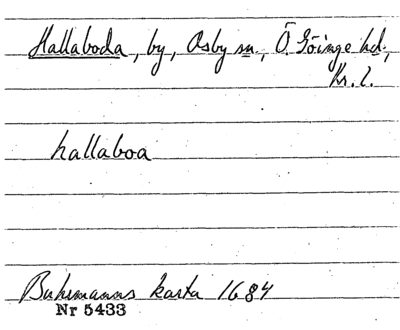 Hallaboda, by, Osby sn., Ö. Göinge hd.,
Kr. l.
hallaboa
Buhrmanns karta 1684
Nr 5433